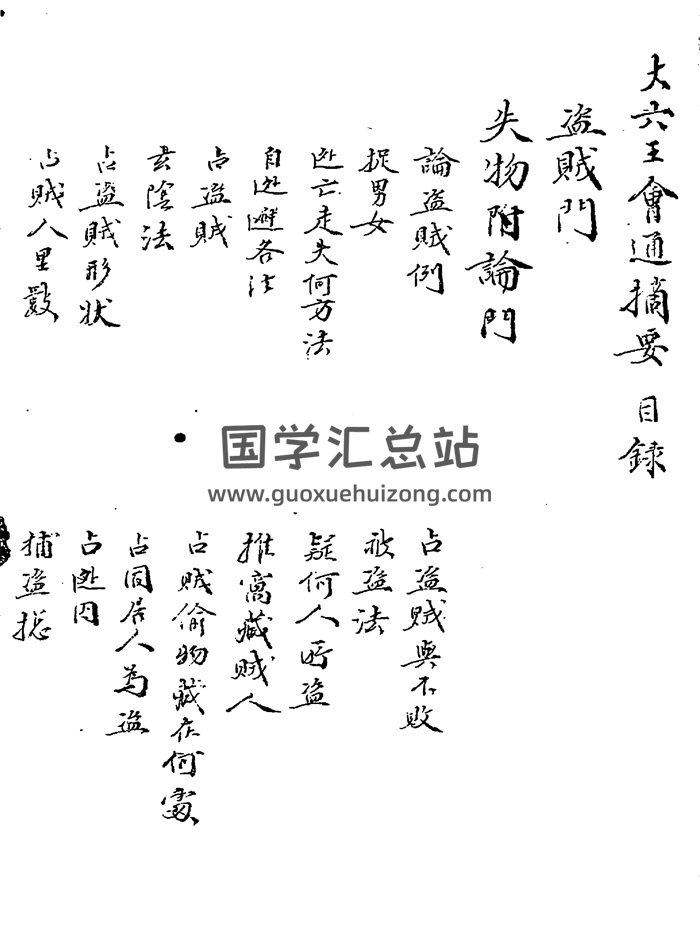 大六壬會通摘要 目錄
盜賊門
失物附論門
論盜賊例
捉男女
逃亡走失何方法
自逃避各法
占盜賊
玄陰法
占盜賊形状
占賊人里數
占盜賊與不敗
被盜法
疑何人所盜
推窩藏賊人
占賊偷物藏在何處
占同居人為盜
占逃因
捕盜
国学汇总站
www.guoxuehuizong.com